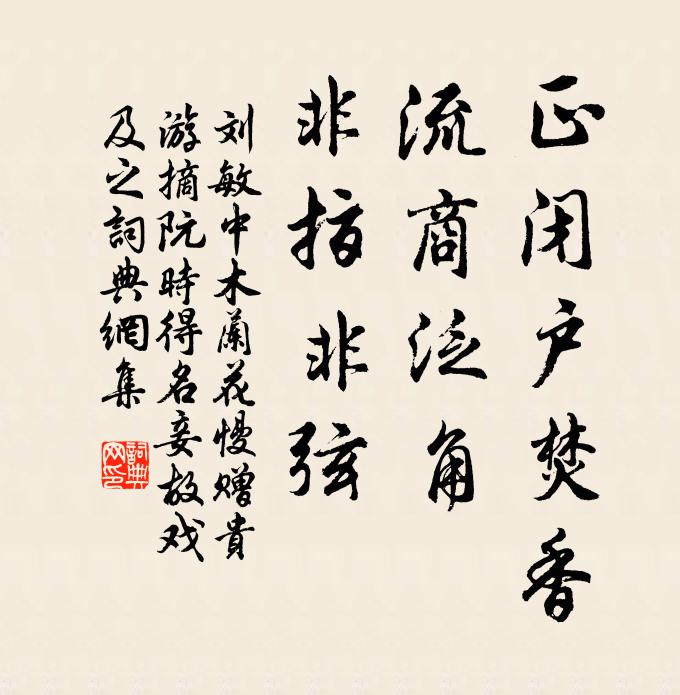 正闭户焚香
流商泛角
非指非弦
刘敏中木蘭花慢赠貴
游摘阮時得名妾故戏
及之詞典網集
詞典网印